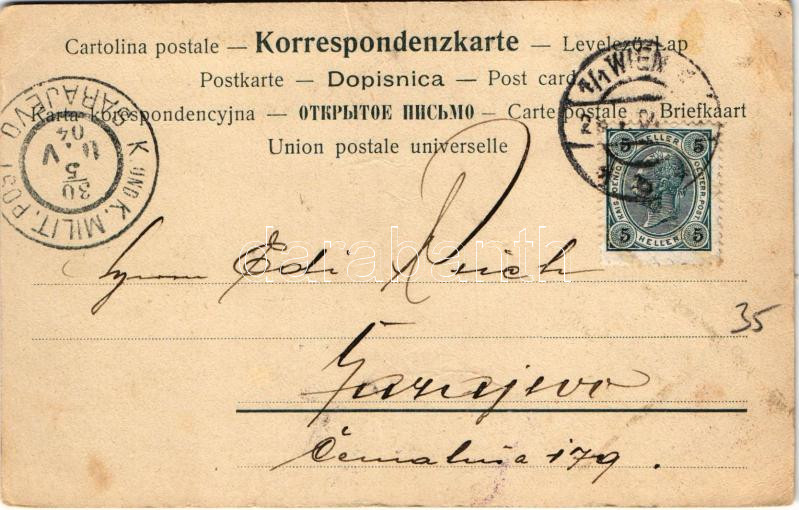 Cartolina postale — Korrespondenzkarte — Levelező-Lap
Postkarte — Dopisnica — Post card
Karta korespondencyjna — ОТКРЫТОЕ ПИСЬМО — Carte postale — Briefkaart
Union postale universelle
K. UND K. MILIT. POST
SARAJEVO
30
5
04
V
1/1 WIEN
5 HELLER 5
KAIS. KOENIG. OESTERR. POST
5 HELLER 5
Edi Reich
Sarajevo
Čemaluša 179.
35
darabanth